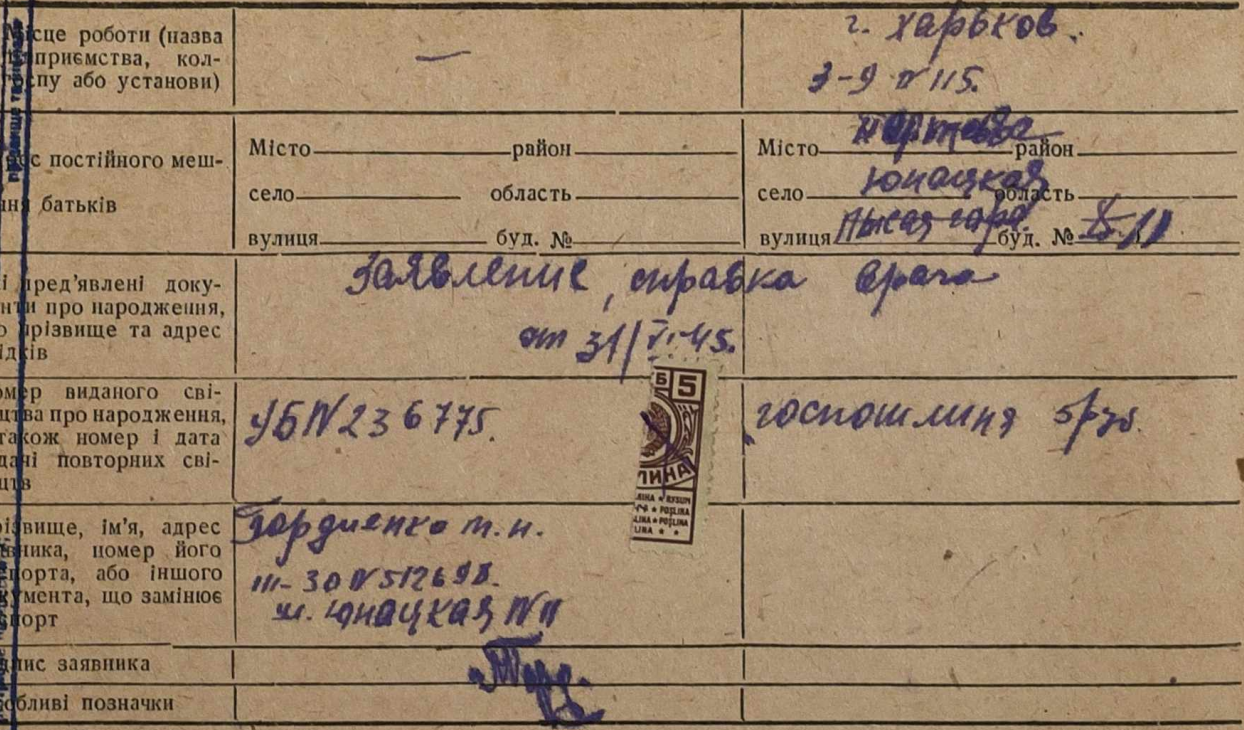 Місце роботи (назва
підприємства, кол-
госпу або установи)
—
г. Харьков.
3-9 № 115.
рес постійного меш-
ння батьків
Місто район
село область
вулиця буд. №
Місто район
Юнацкая
село область
Лысая гора.
вулиця буд. № 11
і пред'явлені доку-
нти про народження,
о прізвище та адрес
ідків
Заявление, справка врача
от 31/VI-45.
омер виданого сві-
цтва про народження,
також номер і дата
дачі повторних сві-
цтв
УБ № 236775.
Б 5
ЛИНА
госпошлина 5 руб.
різвище, ім'я, адрес
вника, номер його
порта, або іншого
кумента, що замінює
спорт
Гордиенко т. н.
III-30 № 512698.
ул. Юнацкая № 11
дпис заявника
обливі позначки